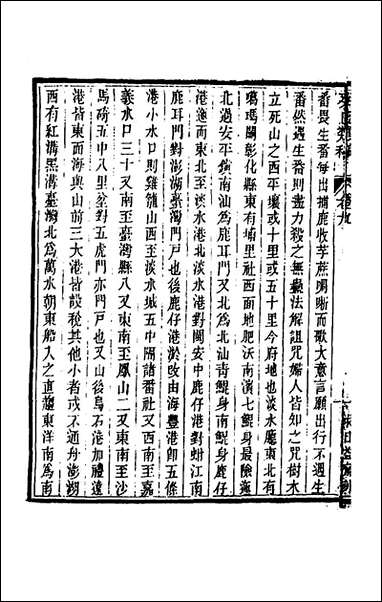 番畏生番每出捕鹿收芋蔗鳴晰而歌大意言願出行不遇生
番然遇生番則盡力殺之無蠱法解詛咒婦人皆知之咒樹木
立死山之西平壤或十里或五十里今府地也淡水廳東北有
噶瑪闌彰化縣東有埔里社西面地肥沃南演七鯤身最險迤
北過安平鎮南汕爲鹿耳門又北爲北汕青鯤身南鯤身鹿仔
港迤而東北至淡水港北淡水港對閩安中鹿仔港對蚶江南
鹿耳門對廈門皆臺灣門戶也後鹿仔港淤改由海豐港卽五條
港小水口則雞籠山西至淡水城五中隔諸番社又西南至嘉
義水口三十又南至臺灣縣八又東南至鳳山二又東南至沙
馬磯五中八里坌對五虎門亦門戶也又山後烏石港加禮遠
港皆東面海與山前三大港皆設稅其他小者或不通舟澎湖
西有紅溝黑溝臺灣北爲萬水朝東船入之直趨東洋南爲南